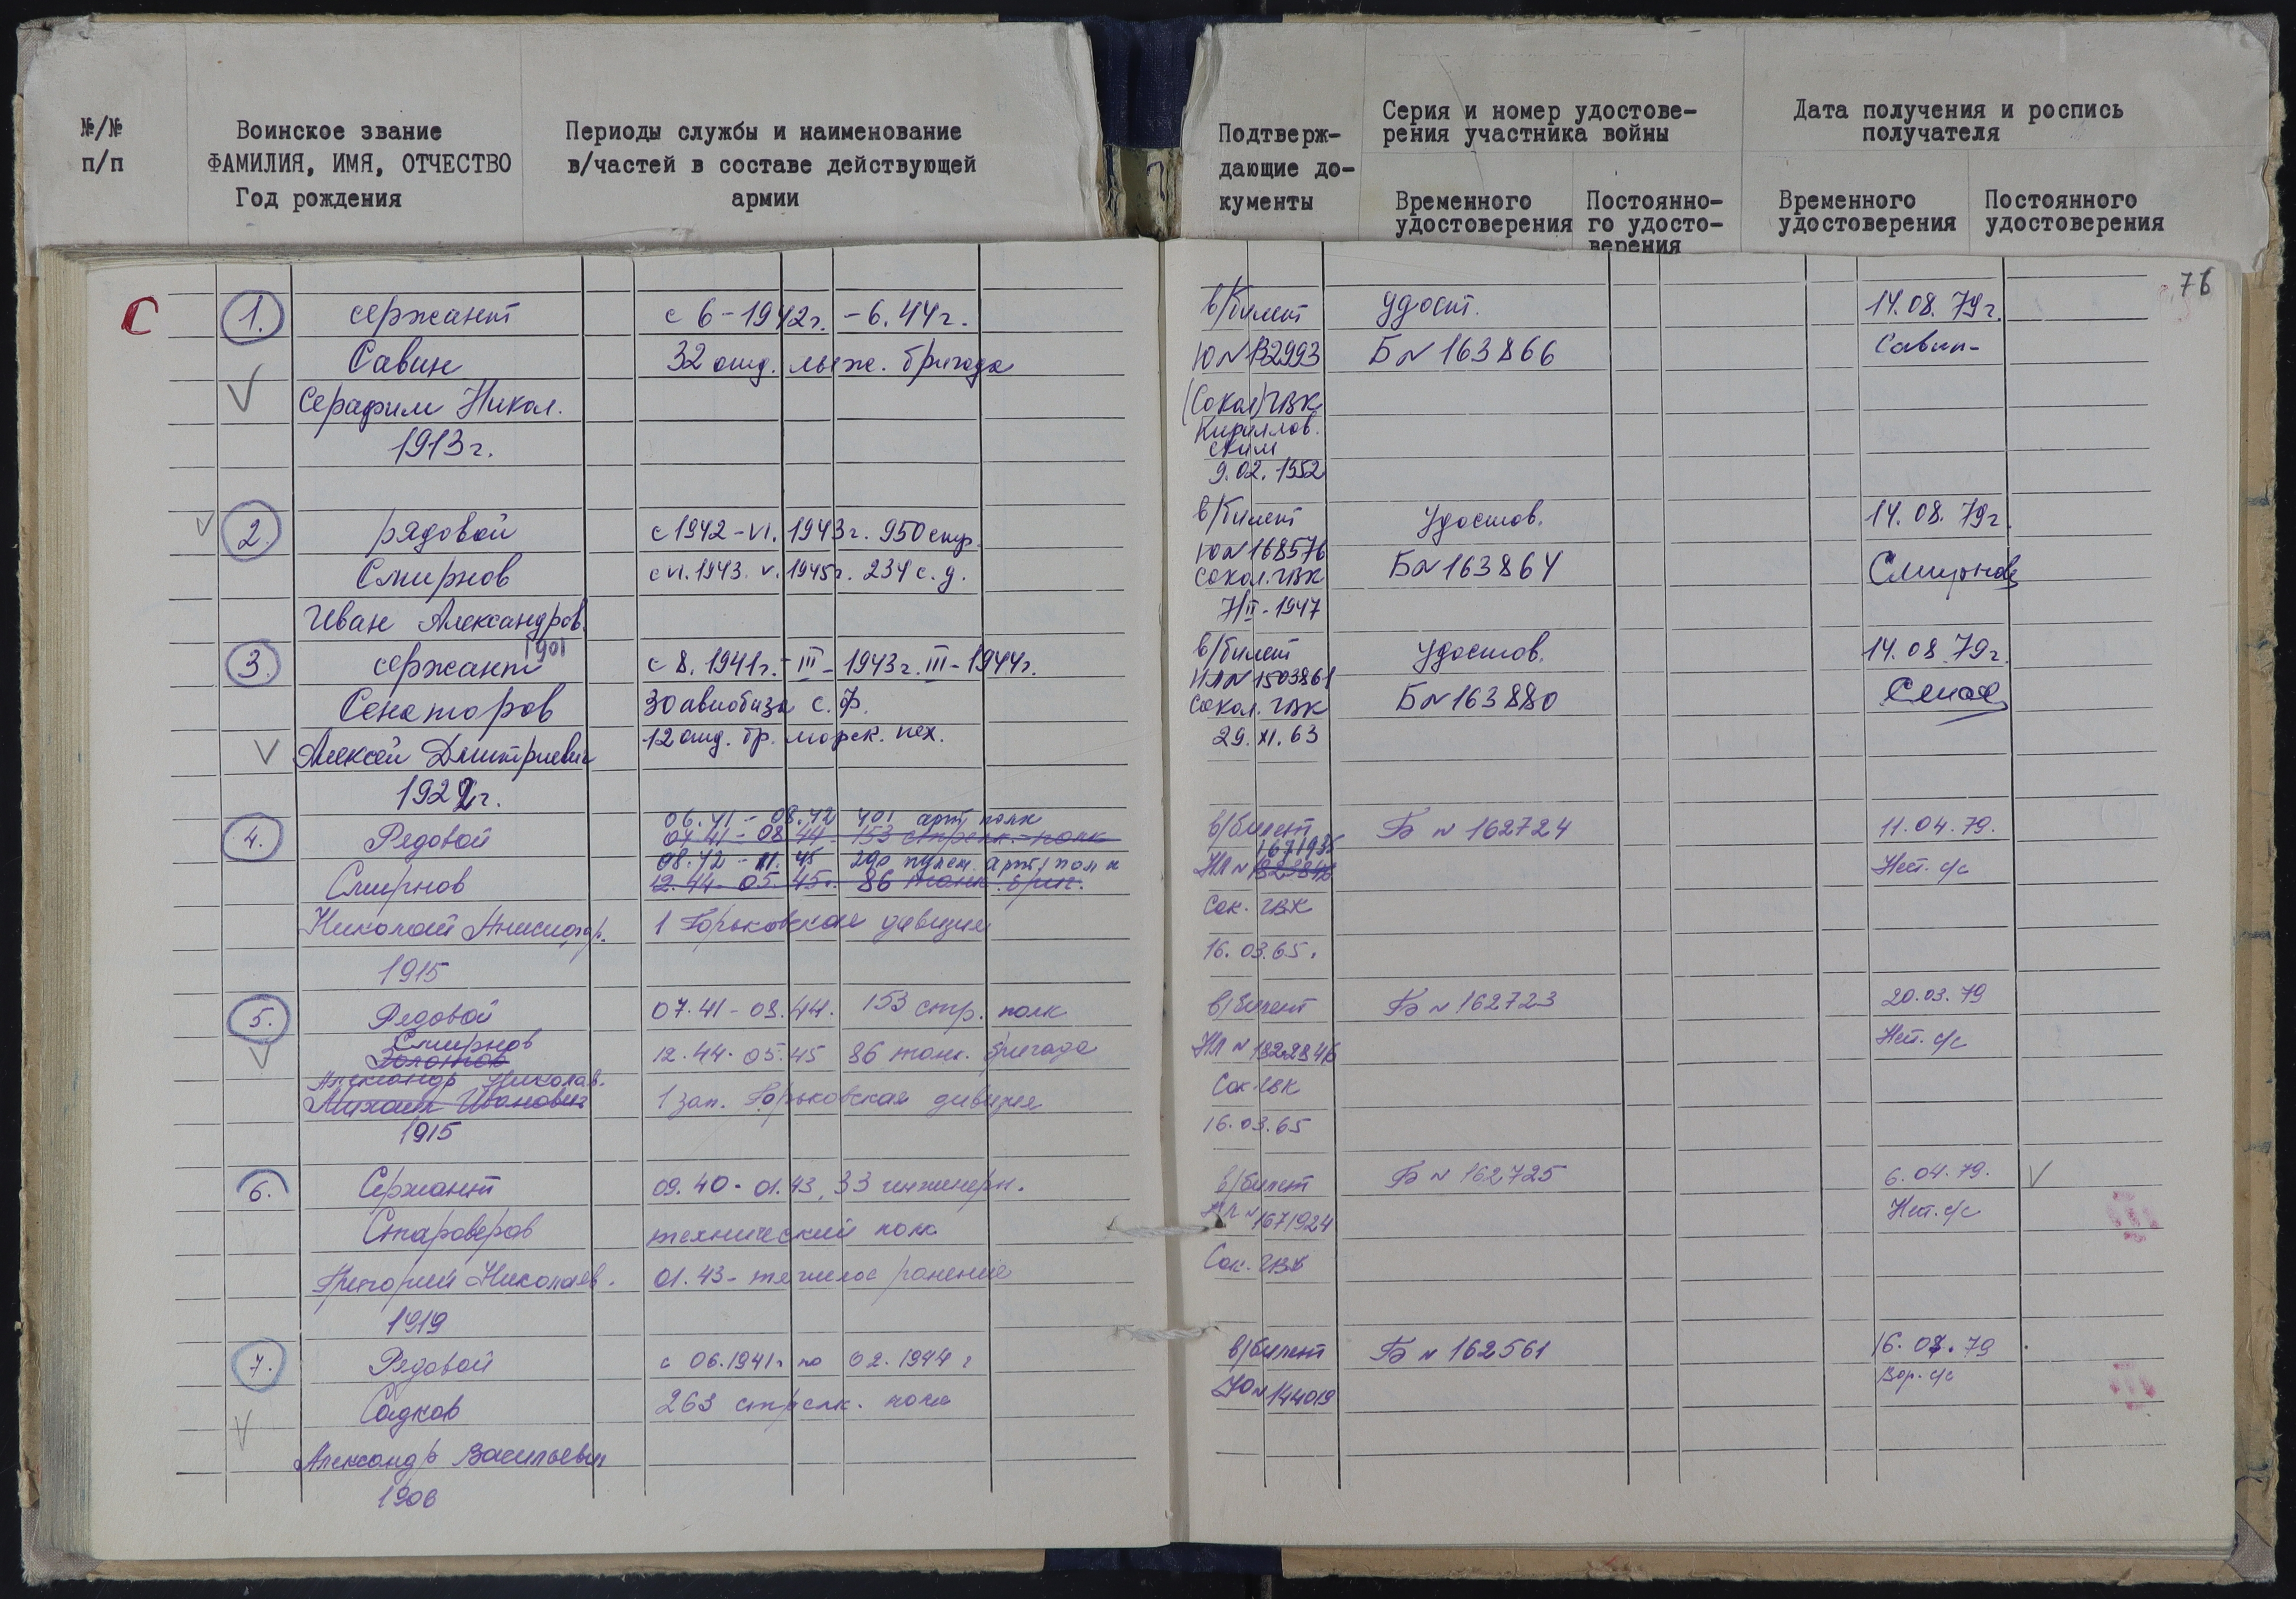 №/№
п/п
Воинское звание
ФАМИЛИЯ, ИМЯ, ОТЧЕСТВО
Год рождения
Периоды службы и наименование
в/частей в составе действующей
армии
Подтверж-
дающие до-
кументы
Серия и номер удостове-
рения участника войны
Временного
удостоверения
Постоянно-
го удосто-
верения
Дата получения и роспись
получателя
Временного
удостоверения
Постоянного
удостоверения
76
С
1. сержант с 6-1942г. -6.44г. в/билет удост. 14.08.79г.
Савин 32 отд. лыж. бригада Ю№132993 Б№163866 Савин
Серафим Никол. (Сокол)ГВК
1913г. Кириллов.
ским
9.02.1952
2. рядовой с 1942-VI.1943г. 950 стр. в/билет Удостов. 14.08.79г.
Смирнов с VI.1943. V.1945г. 234 с.д. Ю№168576 Б№163864 Смирнов
Иван Александров. Сокол.ГВК
1901 7/II-1947
3. сержант с 8.1941г.-III-1943г. III-1944г. в/билет Удостов. 14.08.79г.
Сенаторов 30 авиобаза с.ф. НЛ№1503861 Б№163880
Алексей Дмитриевич 12 отд. бр. морск. пех. Сокол. ГВК
1922г. 29.XI.63
06.41-08.42 401 арт полк
4. Рядовой 07.41-08.44 153 стрелк. полк в/билет Б№162724 11.04.79.
08.42-11.45 290 пулем. арт/полк 1671935
Смирнов 12.44-05.45г. 86 танк. бриг. НЛ№1822846 Нет. с/с
Николай 1 Горьковская дивизия Сок. ГВК
1915 16.03.65.
5. Рядовой 07.41-08.44. 153 стр. полк в/билет Б№162723 20.03.79
Смирнов
Золотков 12.44-05.45 86 танк. бригада НЛ№1822846 Нет. с/с
Александр Николав.
Михаил Иванович 1 зап. Горьковская дивизия Сок ГВК
1915 16.03.65
6. Сержант 09.40-01.43, 33 инженерн. в/билет Б№162725 6.04.79.
Староверов технический полк НЛ№1671924 Нет. с/с
Григорий Николаев. 01.43-тяжелое ранение Сок. ГВК
1919
7. Рядовой с 06.1941г по 02.1944г в/билет Б№162561 16.04.79
Садков 263 стрелк. полк Ю№144019 Вор. с/с
Александр Васильевич
1906